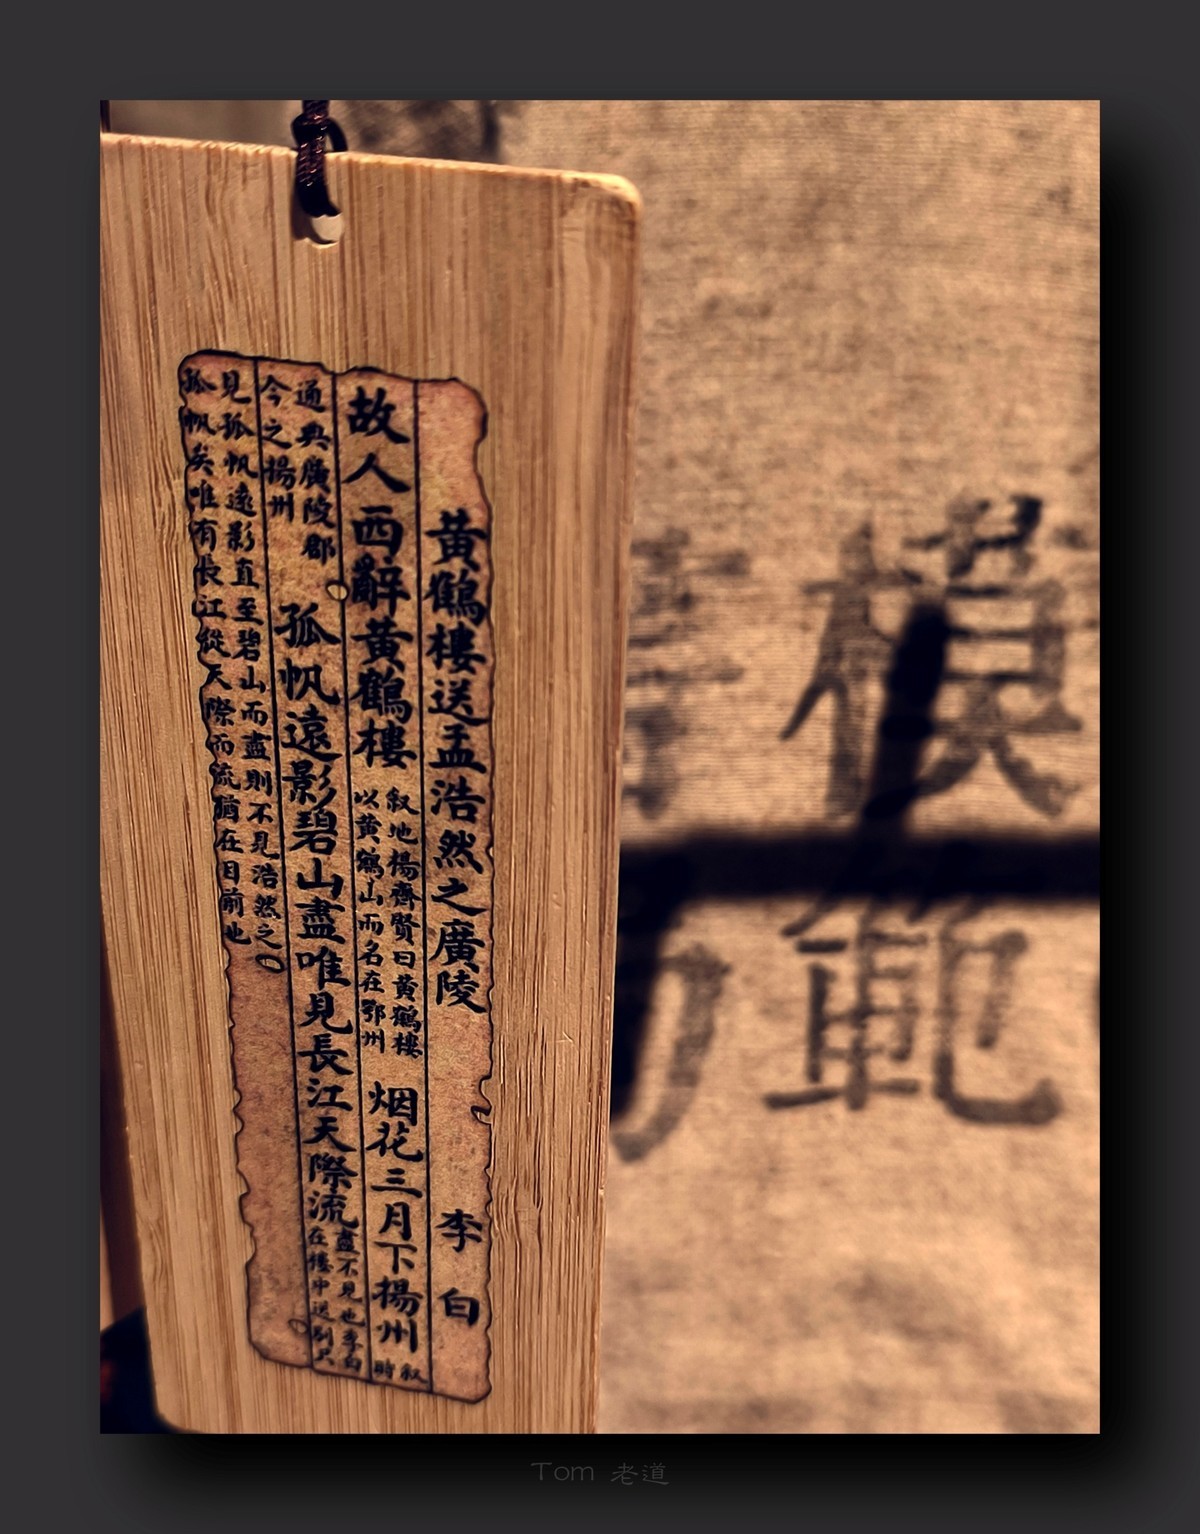 黄鶴樓送孟浩然之廣陵 李白
故人西辭黄鶴樓
叙地楊齊賢曰黄鶴樓
以黄鶴山而名在鄂州
烟花三月下揚州
叙
時
通典廣陵郡
今之揚州
孤帆遠影碧山盡唯見長江天際流
盡不見也李白
在樓中送別只
見孤帆遠影直至碧山而盡則不見浩然之
孤帆矣唯有長江縱天際而流猶在目前也
模範
Tom 老道